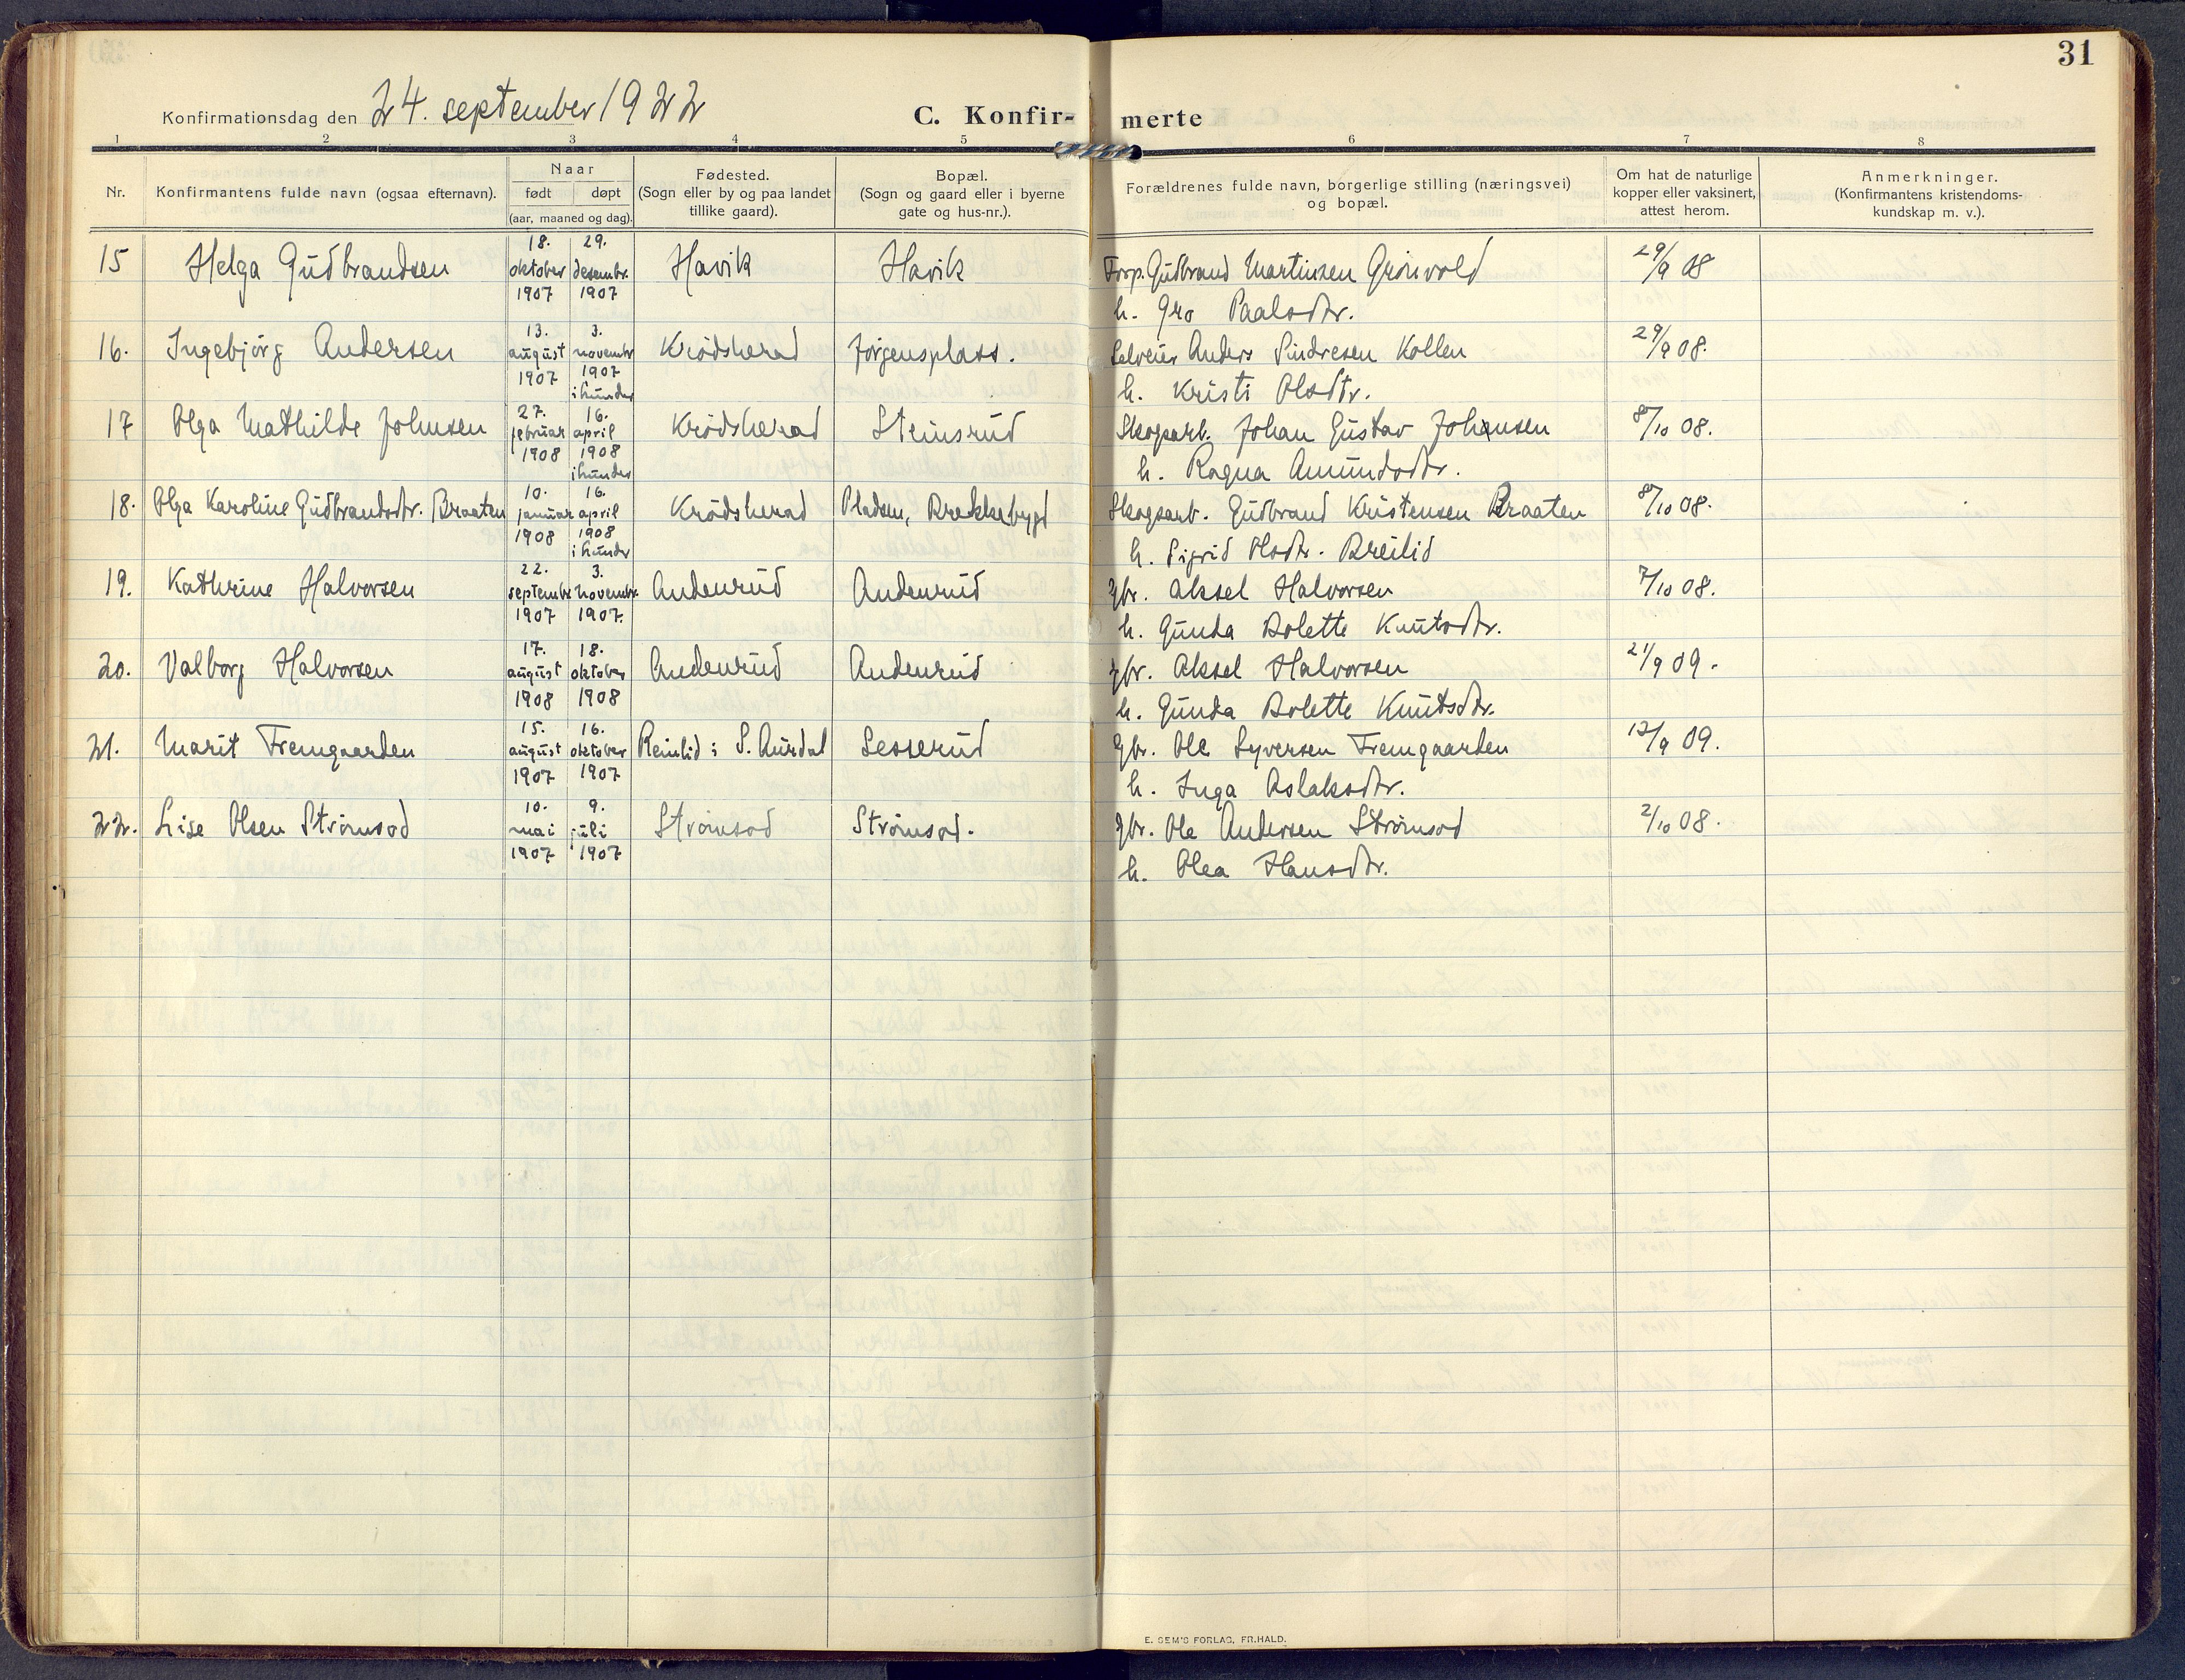 31
Konfirmationsdag den 24. september 1922
C. Konfir- merte
1 2 3 4 5 6 7 8
Nr.
Konfirmantens fulde navn (ogsaa efternavn).
Naar
født døpt
(aar, maaned og dag).
Fødested.
(Sogn eller by og paa landet
tillike gaard).
Bopæl.
(Sogn og gaard eller i byerne
gate og hus-nr.).
Forældrenes fulde navn, borgerlige stilling (næringsvei)
og bopæl.
Om hat de naturlige
kopper eller vaksinert,
attest herom.
Anmerkninger.
(Konfirmantens kristendoms-
kundskap m. v.).
18. 29.
15 Helga Gudbrandsen oktober desembr. Havik Havik Forp. Gudbrand Martinsen Grönvold 29/9 08
1907 1907
h. Gro Paalsdtr.
13. 3.
16. Ingebjörg Andersen august novembr Krödsherad Jörgensplass. Selveier Anders Sindresen Kollen 29/9 08.
1907 1907
i hunder h. Kristi Olsdtr.
27. 16.
17 Olga Mathilde Johnsen februar april Krödsherad Steinsrud Skogsarb. Johan Gustav Johansen 8/10 08.
1908 1908
i hunder h. Ragna Amundsdtr.
10. 16.
18. Olga Karoline Gudbrandsdtr. Braaten januar april Krödsherad Pladsen, Brekkebygd Skogsarb. Gudbrand Kristensen Braaten 8/10 08.
1908 1908
i hunder h. Sigrid Olsdtr. Breilid
22. 3.
19. Kathrine Halvorsen septembr novembr. Andenrud Andenrud gbr. Aksel Halvorsen 7/10 08.
1907 1907.
h. Gunda Bolette Knutsdtr.
17. 18.
20. Valborg Halvorsen august oktober Andenrud Andenrud gbr. Aksel Halvorsen 21/9 09.
1908 1908
h. Gunda Bolette Knutsdtr.
15. 16.
21. Marit Fremgaarden august oktober Reinlid i S. Aurdal Sesserud Gbr. Ole Syversen Fremgaarden 13/9 09.
1907 1907
h. Inga Aslaksdtr.
10. 9.
22. Lise Olsen Strömsod mai juli Strömsod Strömsod. Gbr. Ole Andersen Strömsod 2/10 08.
1907 1907
h. Olea Hansdtr.
E. SEM'S FORLAG, FR.HALD.